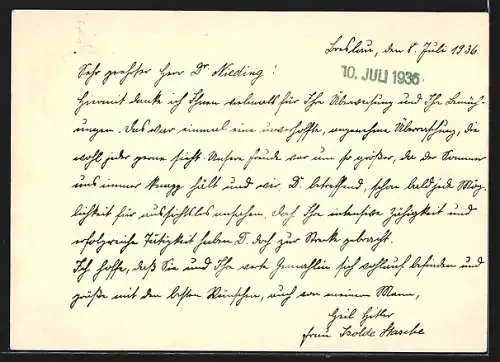 Breslau, den 8. Juli 1936.
10. JULI 1936
Sehr geehrter Herr Dr. Nieding!
Hiermit danke ich Ihnen vielmals für Ihre Überweisung und Ihre Bemüh-
ungen. Das war einmal eine unverhoffte, angenehme Überraschung, die
wohl jeder gerne sieht. Unsere Freude war um so größer, da der Sommer
uns immer knapp hält und wir, D. betreffend, schon bald jede Mög-
lichkeit für aussichtslos ansahen, doch Ihre intensive Zähigkeit und
erfolgreiche Tätigkeit haben D. doch zur Strecke gebracht.
Ich hoffe, daß Sie und Ihre werte Gemahlin sich wohlauf befinden und
grüße mit den besten Wünschen, auch von meinem Mann,
Heil Hitler
Frau Isolde Hasche